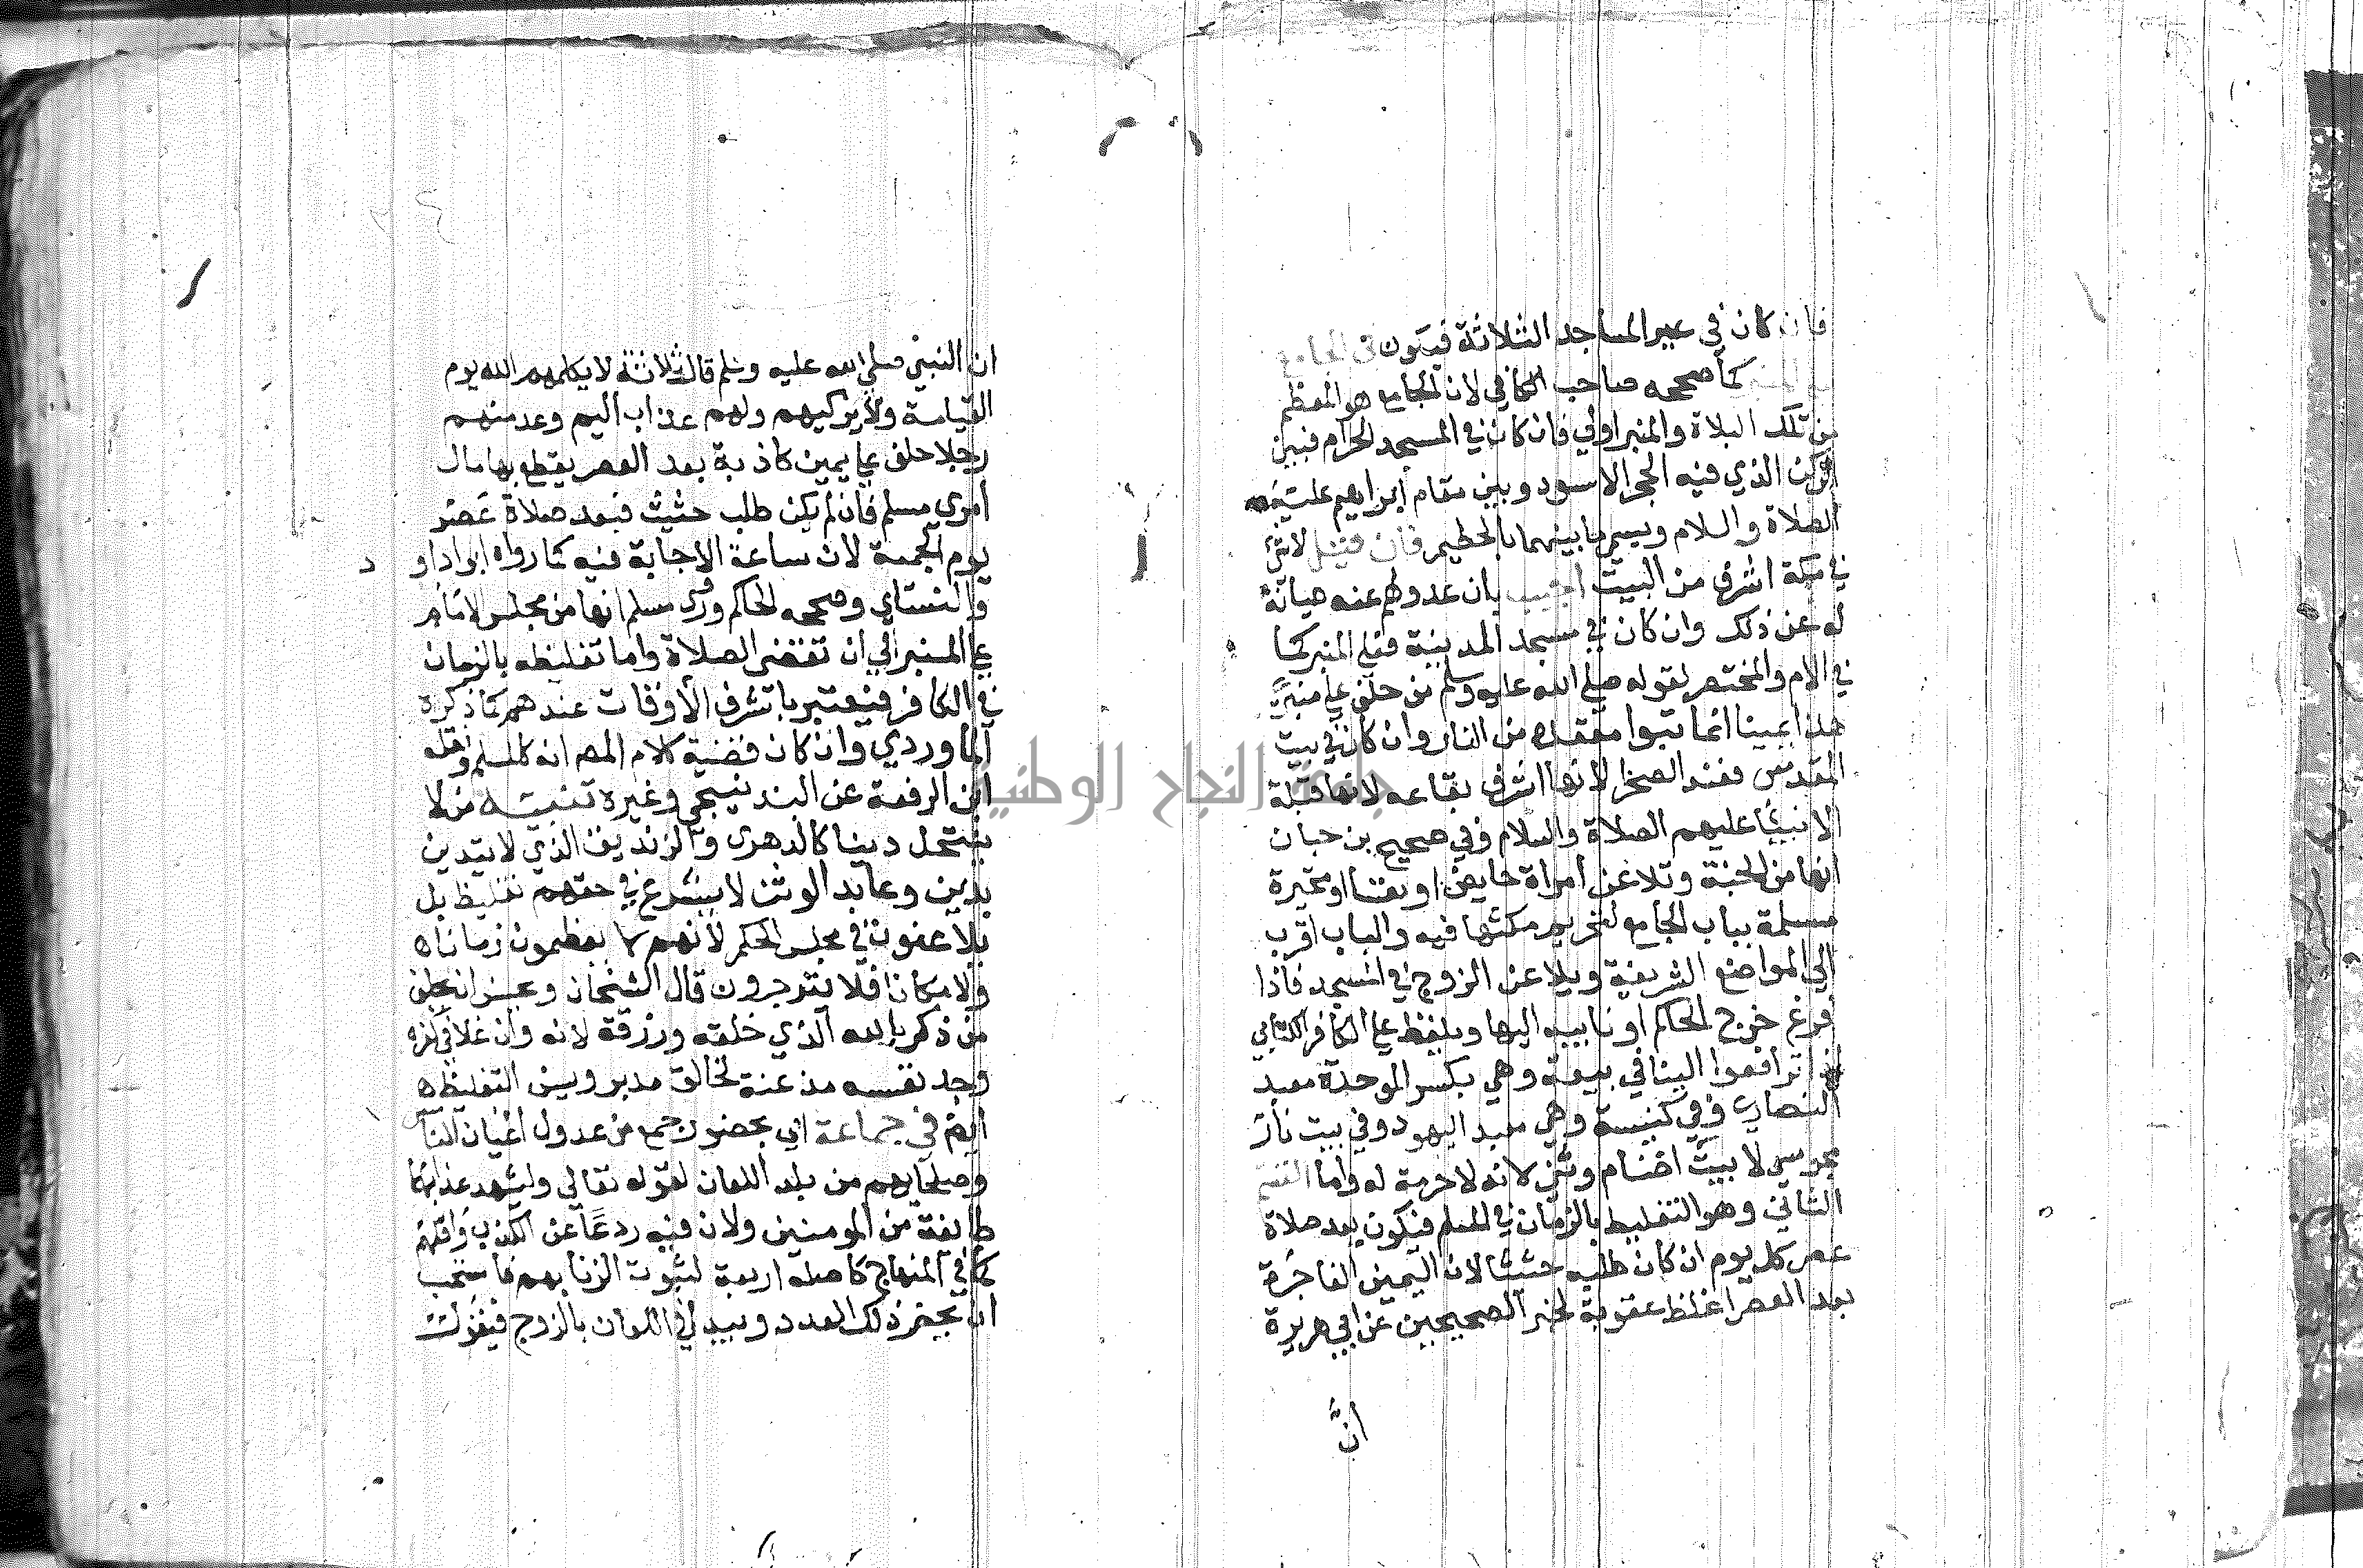 فان كان في غير المساجد الثلاثة فيكون في الجامع
كما صححه صاحب الكافي لان الجامع هو المعظم
من تلك البلاة والمنبر اولي فان كان في المسجد الحرام فبين
الركن الذي فيه الحجر الاسود وبين مقام ابراهيم عليه
الصلاة والسلام ويسمي ما بينهما بالحطيم فان قيل لا شئ
في مكة اشرف من البيت اجيب بان عدولهم عنه صيانة
له عن ذلك وان كان في مسجد المدينة فعلي المنبر كما
في الام والمختصر لقوله صلي الله عليه وسلم من حلف علي منبري
هذا يمينا اثما تبوا مقعده من النار وان كان في بيت
المقدس فعند الصخرا لانها اشرف بقاعه لانها قبلة
الانبيا عليهم الصلاة والسلام وفي صحيح بن حبان
انها من الجنة وتلاعن امراة حايض او نفسا او متحيرة
مسلمة بباب الجامع لتحريم مكثها فيه والباب اقرب
الي المواضع الشريفة ويلاعن الزوج في المسجد فاذا
فرغ خرج الحاكم او نايبه اليها ويلفظ علي الكافر الكتابي
اذا ترافعوا الينا في بيعة وهي بكسر الموحدة معبد
النصاري وفي كنيسة وهي معبد اليهود وفي بيت نار
مجوسي لا بيت اصنام وثني لانه لا حرمة له واما القسم
الثاني وهو التغليظ بالزمان في المسلم فيكون بعد صلاة
عصر كل يوم ان كان طلبه حثيثا لان اليمين الفاجرة
بعد العصر اغلظ عقوبة لخبر الصحيحين عن ابي هريرة
انّ
ان النبي صلي الله عليه وسلم قال ثلاثة لا يكلمهم الله يوم
القيامة ولا يزكيهم ولهم عذاب اليم وعد منهم
رجلا حلف علي يمين كاذبة بعد العصر يقطع بها مال
امري مسلم فان لم يكن طلب حثيث فبعد صلاة عصر
يوم الجمعة لان ساعة الاجابة فيه كما رواه ابوا داو د
والنساي وصححه الحاكم وروي مسلم انها من مجلس الامام
علي المنبر الي ان تقضي الصلاة واما تغليظه بالزمان
في الكافر فيعتبر باشرف الاوقات عندهم كما ذكره
الماوردي وان كان قضية كلام المص انه كالمسلم ونقله
ابن الرفعة عن البندنيجي وغيره تنبيه من لا
ينتحل دينا كالدهري والزنديق الذي لا يتدين
بدين وعابد الوثن لا يشرع في حقهم تغليظ بل
يلاعنون في مجلس الحكم لانهم لا يعظمون زمانا ه
ولا مكانا فلا ينزجرون قال الشيخان ويحسن ان يحلف
من ذكر بالله الذي خلقه ورزقه لانه وان غلا في كفره
وجد نفسه مذعنة لخالق مدبر ويسن التغليظ ه
ايضا في جماعة اي بحضور جمع من عدول اعيان الناس
وصلحايهم من بلد اللعان لقوله تعالي وليشهد عذابهما
طايفة من المومنين ولان فيه ردعا عن الكذب واقلهم
كما في المنهاج كاصله اربعة لثبوت الزنا بهم فاستحب
ان يحضر ذلك العدد ويبدا في اللعان بالزوج فيقول
جامعة النجاح الوطنية